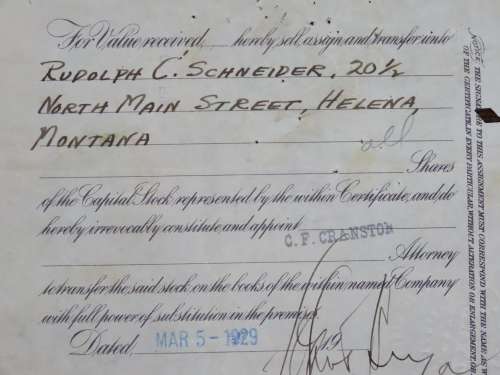 For Value received, hereby sell, assign and transfer unto
RUDOLPH C. SCHNEIDER, 20½
NORTH MAIN STREET, HELENA,
MONTANA
all
Shares
of the Capital Stock represented by the within Certificate, and do
hereby irrevocably constitute and appoint
C. F. CRANSTON
Attorney
to transfer the said stock on the books of the within named Company
with full power of substitution in the premises.
Dated, MAR 5-1929 19
NOTICE. THE SIGNATURE TO THIS ASSIGNMENT MUST CORRESPOND WITH THE NAME AS W
OF THE CERTIFICATE, IN EVERY PARTICULAR, WITHOUT ALTERATION OR ENLARGEMENT OR